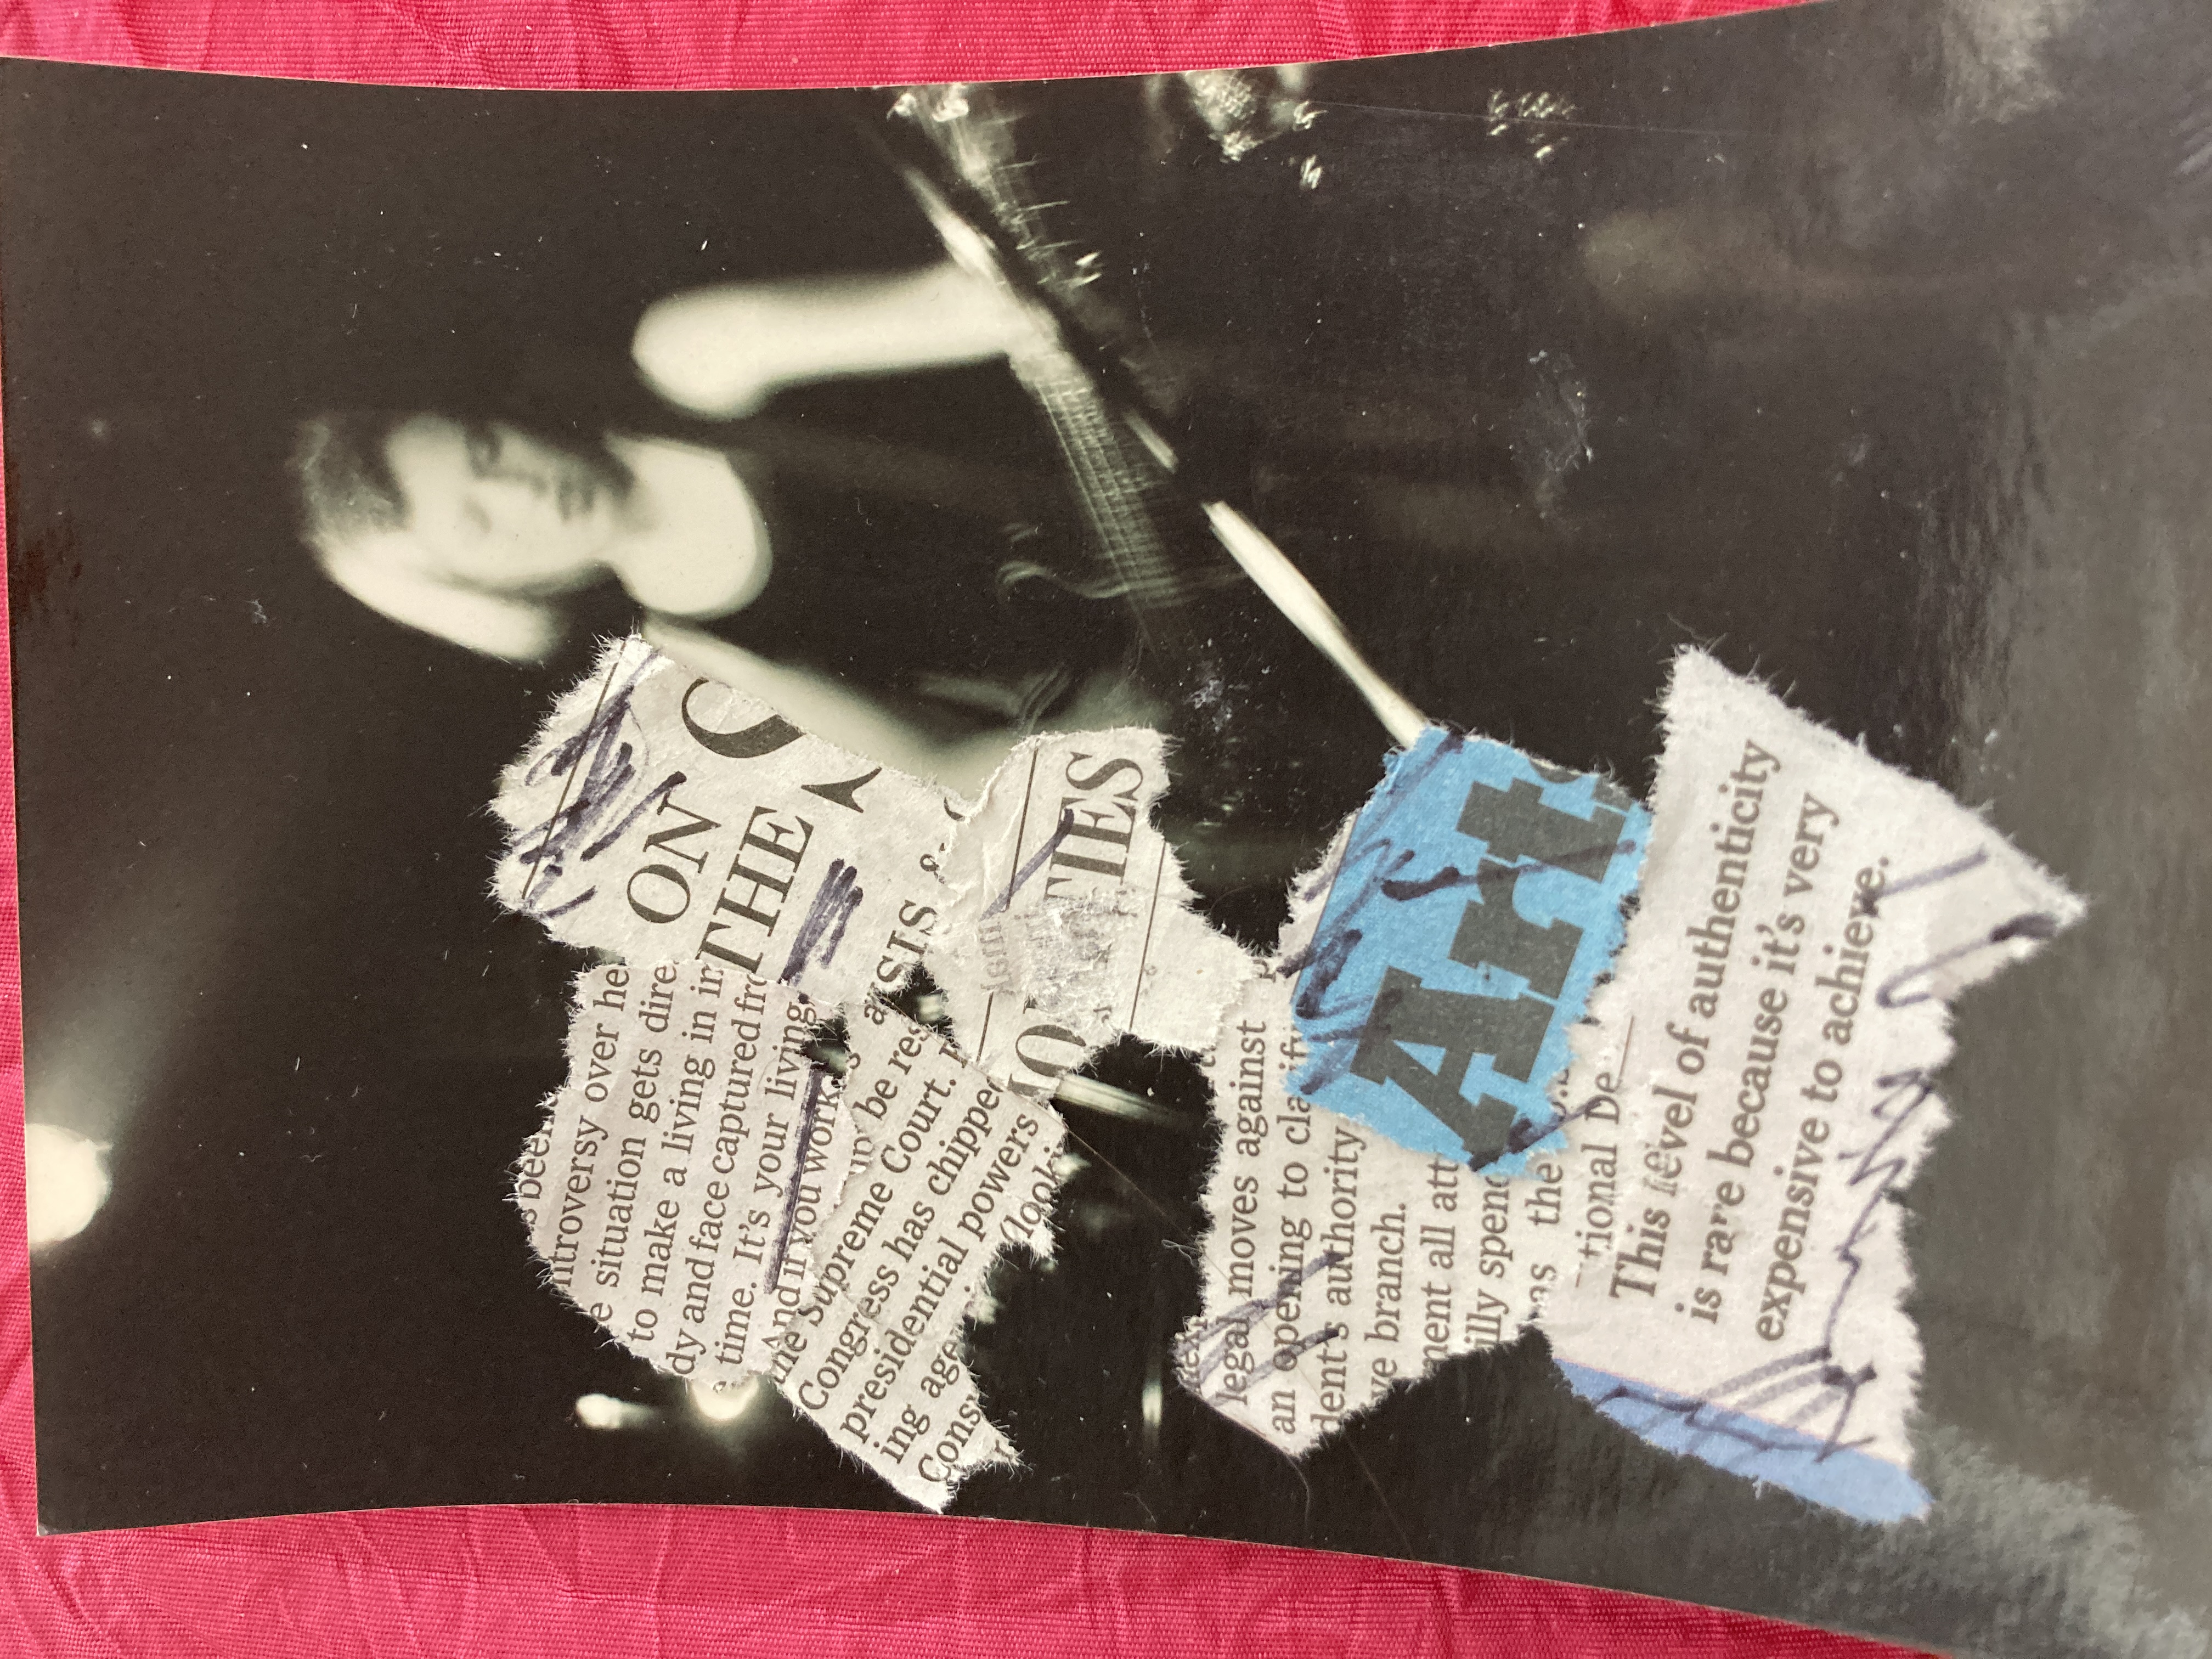 ON
THE
ysis &
TIES
s been
ntroversy over he
e situation gets dire
to make a living in
dy and face captured fro
time. It's your living.
And if you work
up be res
the Supreme Court.
Congress has chipped
presidential powers
ing age (looki
Cons
legal moves against
an opening to clarif
dent's authority
ve branch.
ment all att
illy spend
as the
tional De
Art
This level of authenticity
is rare because it's very
expensive to achieve.